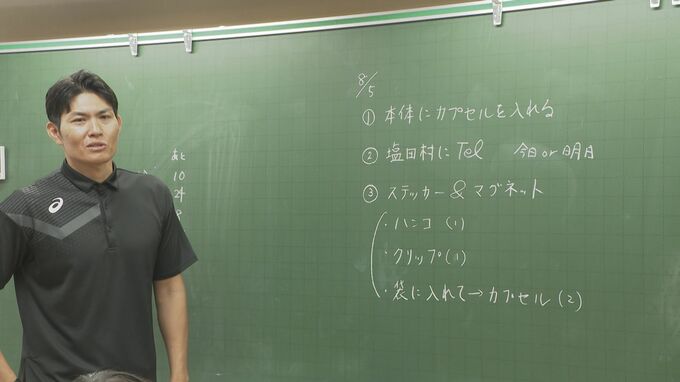 8/5
① 本体にカプセルを入れる
② 塩田村にTel 今日or明日
③ ステッカー & マグネット
・ハンコ (1)
・クリップ (1)
・袋に入れて→カプセル (2)
あと
10
24